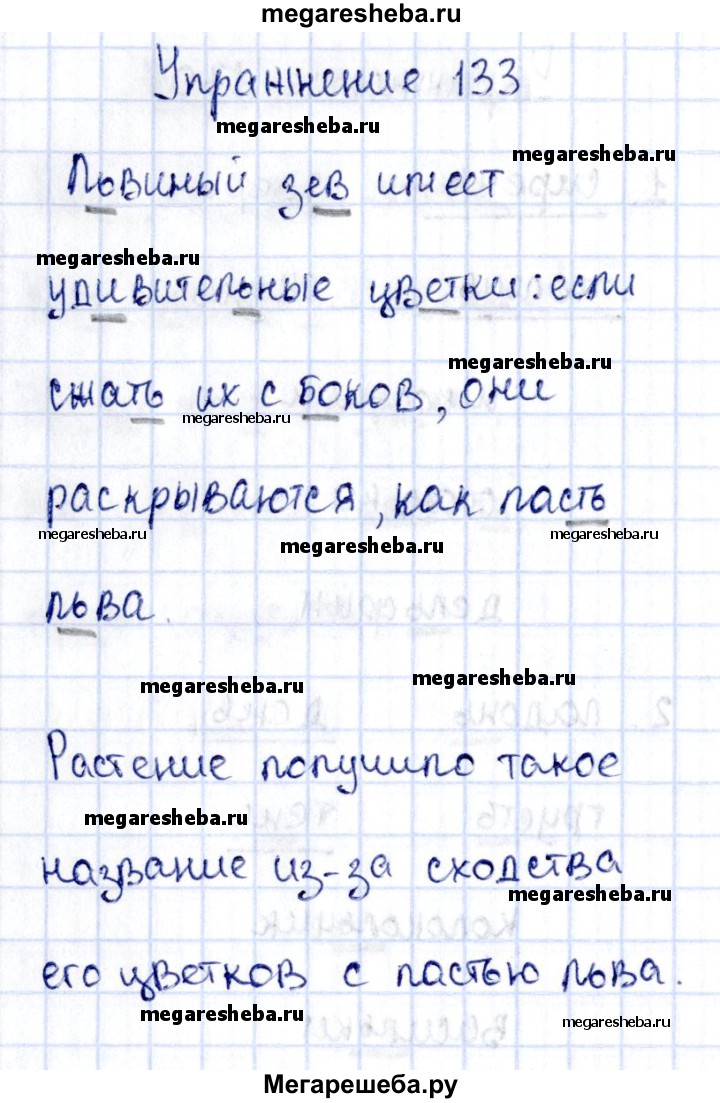 megaresheba.ru
Упражнение 133
megaresheba.ru
megaresheba.ru
Львиный зев имеет
megaresheba.ru
удивительные цветки: если
megaresheba.ru
сжать их с боков, они
megaresheba.ru
раскрываются, как пасть
megaresheba.ru
megaresheba.ru
megaresheba.ru
льва.
megaresheba.ru
megaresheba.ru
Растение получило такое
megaresheba.ru
название из-за сходства
megaresheba.ru
его цветков с пастью льва.
megaresheba.ru
megaresheba.ru
Мегарешеба.ру